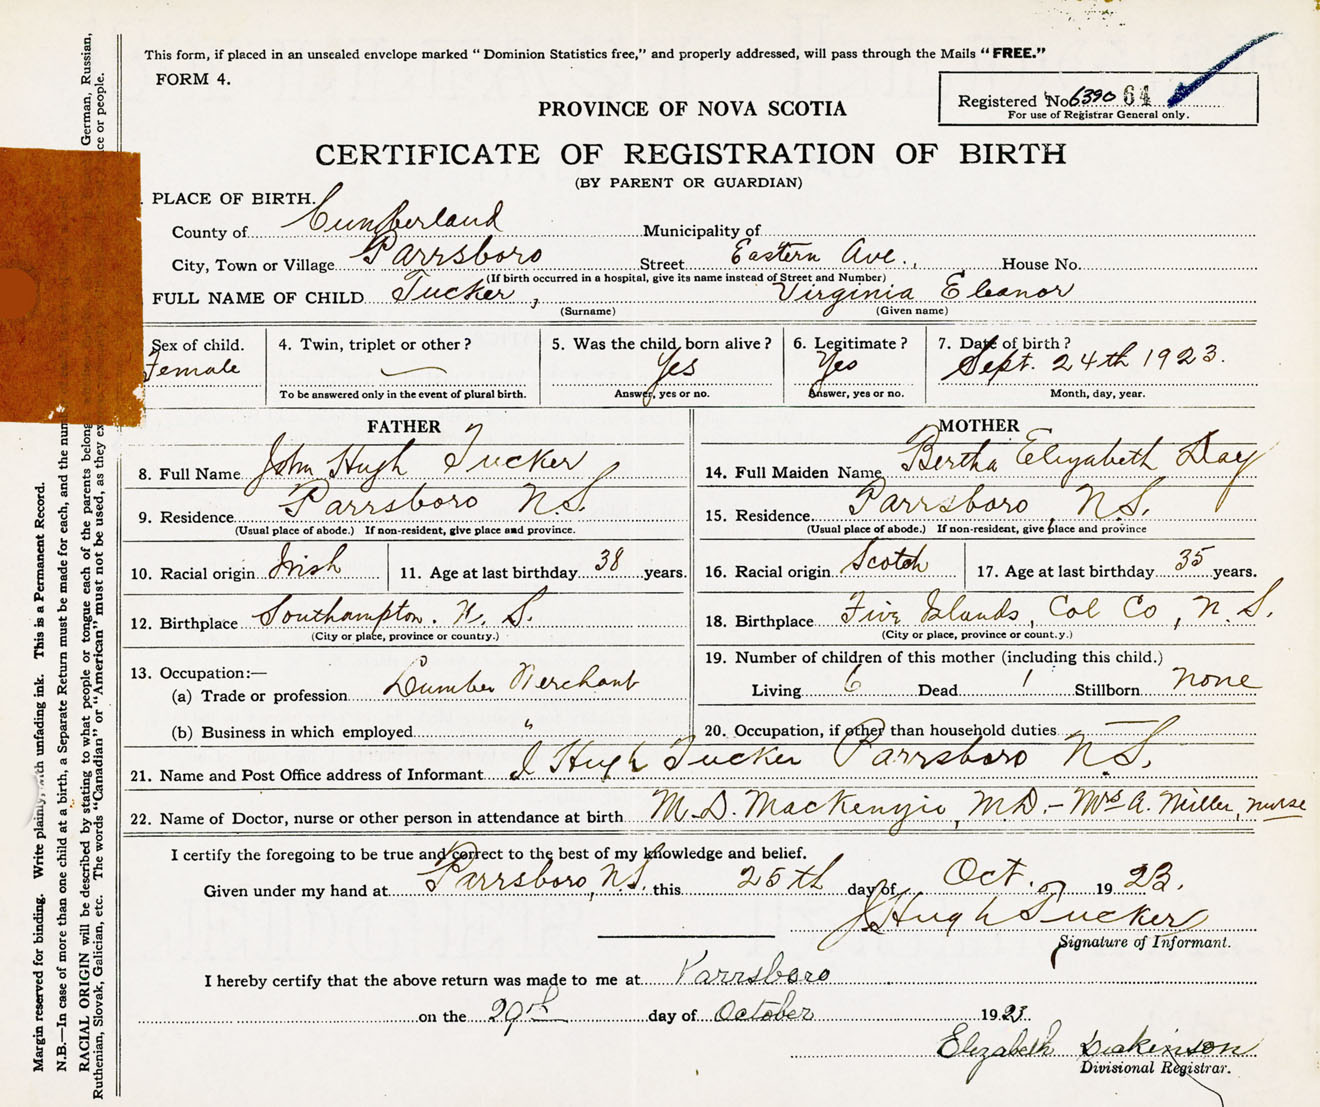 This form, if placed in an unsealed envelope marked "Dominion Statistics free," and properly addressed, will pass through the Mails "FREE."
FORM 4.
Registered No. 6390 64
For use of Registrar General only.
PROVINCE OF NOVA SCOTIA
CERTIFICATE OF REGISTRATION OF BIRTH
(BY PARENT OR GUARDIAN)
PLACE OF BIRTH.
County of Cumberland Municipality of
City, Town or Village Parrsboro Street Eastern Ave., House No.
(If birth occurred in a hospital, give its name instead of Street and Number)
FULL NAME OF CHILD Tucker, Virginia Eleanor
(Surname) (Given name)
Sex of child. 4. Twin, triplet or other? 5. Was the child born alive? 6. Legitimate? 7. Date of birth?
Female Yes Yes Sept. 24th 1923.
To be answered only in the event of plural birth. Answer, yes or no. Answer, yes or no. Month, day, year.
FATHER
8. Full Name John Hugh Tucker
9. Residence Parrsboro N.S.
(Usual place of abode.) If non-resident, give place and province.
10. Racial origin Irish 11. Age at last birthday 38 years.
12. Birthplace Southampton. N. S.
(City or place, province or country.)
13. Occupation:—
(a) Trade or profession Lumber Merchant
(b) Business in which employed "
MOTHER
14. Full Maiden Name Bertha Elizabeth Day
15. Residence Parrsboro, N.S.
(Usual place of abode.) If non-resident, give place and province
16. Racial origin Scotch 17. Age at last birthday 35 years.
18. Birthplace Five Islands, Col Co, N. S.
(City or place, province or count.y.)
19. Number of children of this mother (including this child.)
Living 6 Dead 1 Stillborn none
20. Occupation, if other than household duties —
21. Name and Post Office address of Informant J Hugh Tucker Parrsboro N.S.
22. Name of Doctor, nurse or other person in attendance at birth M.D. MacKenzie, M.D. - Mrs A. Miller, nurse
I certify the foregoing to be true and correct to the best of my knowledge and belief.
Given under my hand at Parrsboro, N.S. this 25th day of Oct. 1923.
J Hugh Tucker
Signature of Informant.
I hereby certify that the above return was made to me at Parrsboro
on the 29th day of October 1923.
Elizabeth Dickinson
Divisional Registrar.
Margin reserved for binding. Write plainly, with unfading ink. This is a Permanent Record.
N.B.—In case of more than one child at a birth, a Separate Return must be made for each, and the num
RACIAL ORIGIN will be described by stating to what people or tongue each of the parents belong German, Russian,
Ruthenian, Slovak, Galician, etc. The words "Canadian" or "American" must not be used, as they ex ce or people.